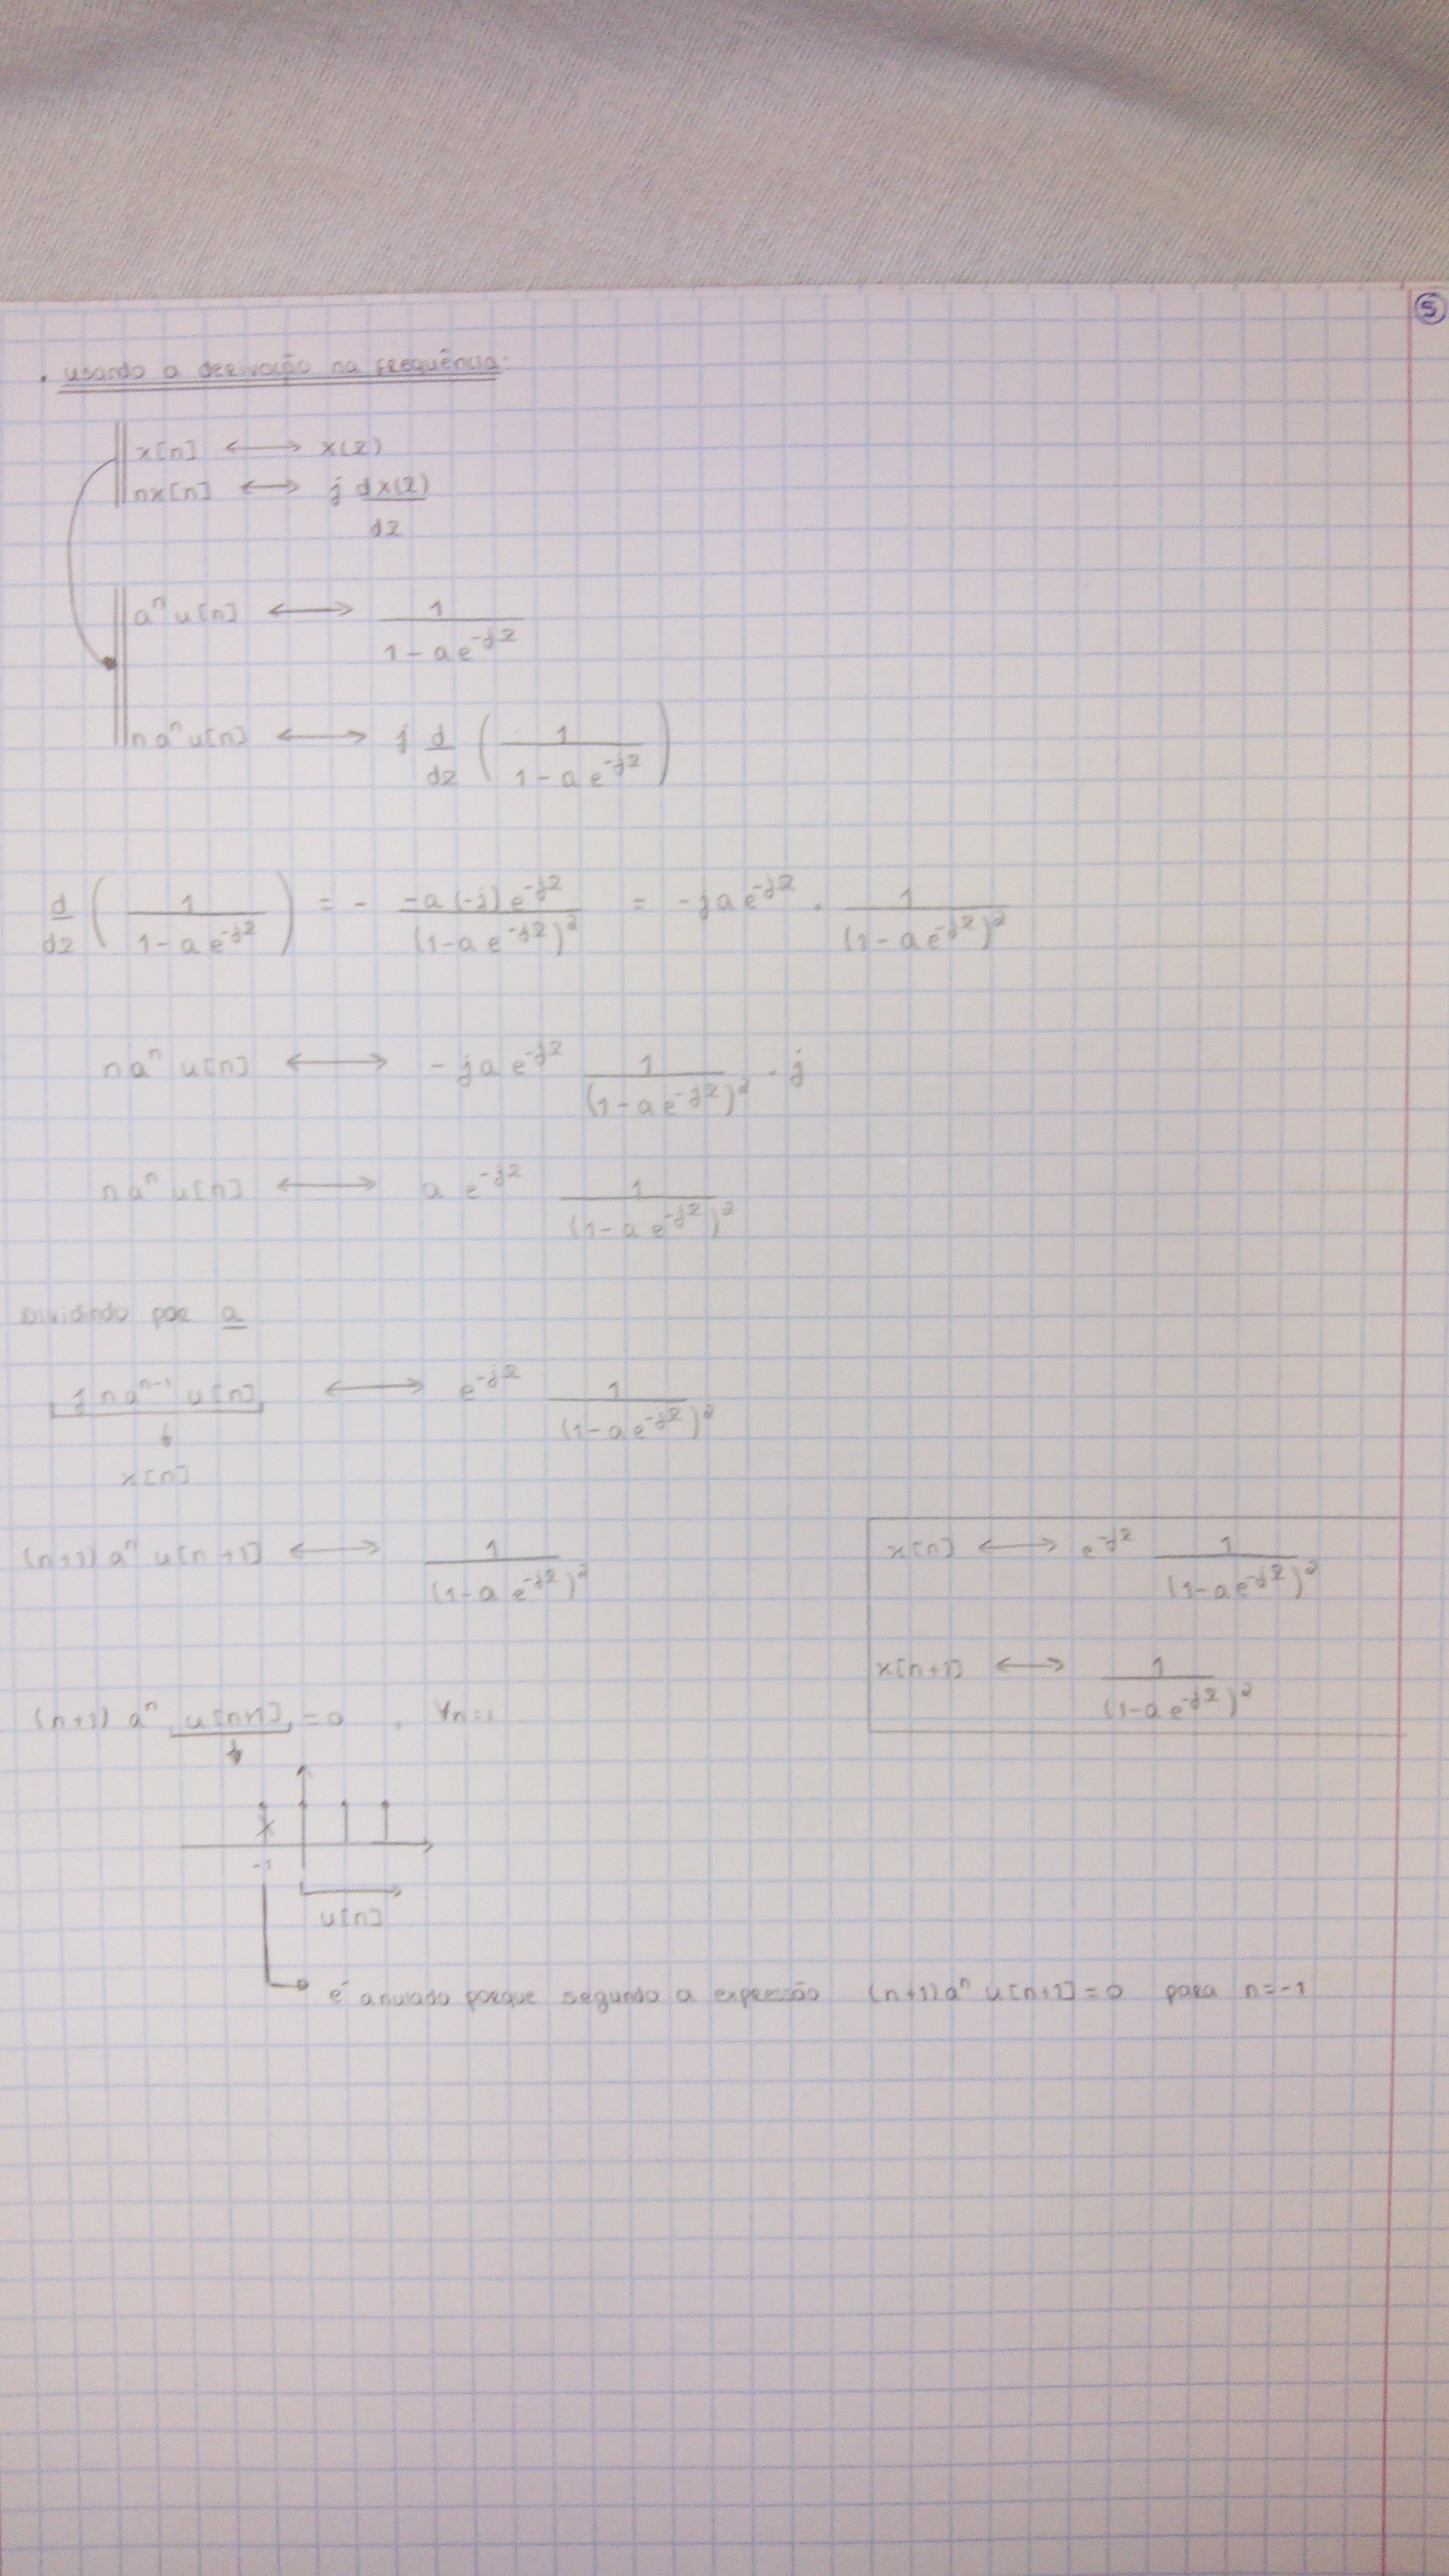 5
. usando a derivação na frequência.
x[n] ⟷ x(Ω)
nx[n] ⟷ j dx(Ω)/dΩ
aⁿ u[n] ⟷ 1/(1-a e^-jΩ)
n aⁿ u[n] ⟷ j d/dΩ (1/(1-a e^-jΩ))
d/dΩ (1/(1-a e^-jΩ)) = - -a(-j)e^-jΩ/(1-a e^-jΩ)² = -ja e^-jΩ . 1/(1-a e^-jΩ)²
n aⁿ u[n] ⟷ -ja e^-jΩ 1/(1-a e^-jΩ)² . j
n aⁿ u[n] ⟷ a e^-jΩ 1/(1-a e^-jΩ)²
Dividindo por a
n a^n-1 u[n] ⟷ e^-jΩ 1/(1-a e^-jΩ)²
x[n]
(n+1) aⁿ u[n+1] ⟷ 1/(1-a e^-jΩ)²
x[n] ⟷ e^-jΩ 1/(1-a e^-jΩ)²
x[n+1] ⟷ 1/(1-a e^-jΩ)²
(n+1) aⁿ u[n+1] = 0 , ∀n=1
-1
u[n]
é anulado porque segundo a expressão (n+1) aⁿ u[n+1] = 0 para n=-1